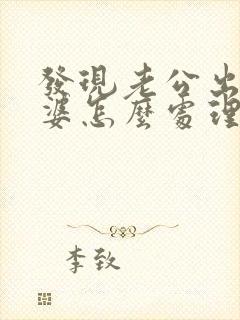 發現老公出
婆怎麼處理
李致